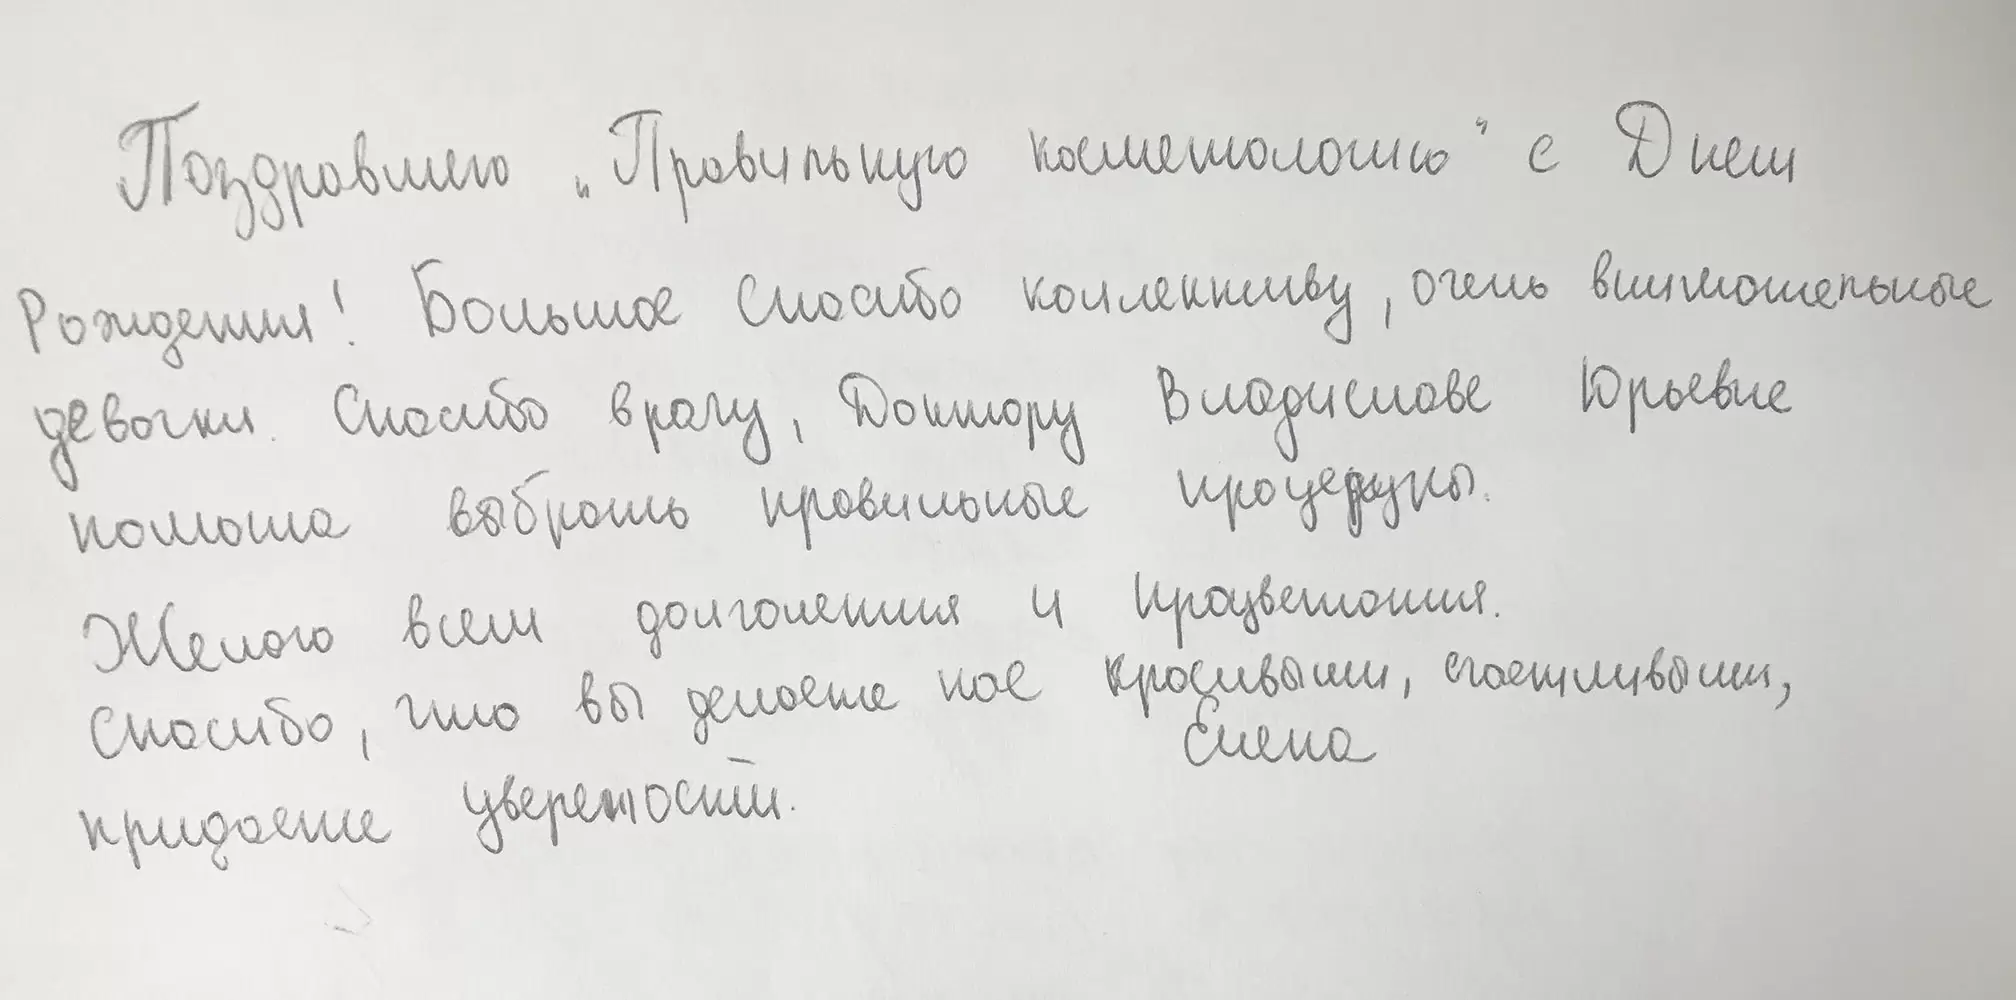 Поздравляю „Правильную косметологию" с Днем
Рождения! Большое спасибо коллективу, очень внимательные
девочки. Спасибо врачу, Доктору Владиславе Юрьевне
помогла выбрать правильные процедуры.
Желаю всем долголетия и процветания.
Спасибо, что вы делаете нас красивыми, счастливыми,
придаете уверенности.
Елена